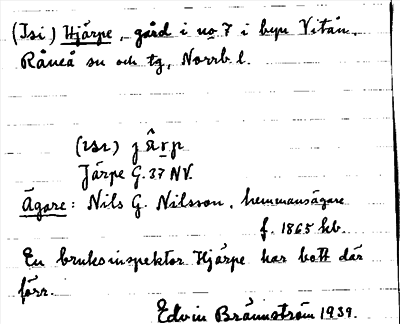 (Isi) Hjärpe, gård i no 7 i byn Vitån,
Råneå sn och tg, Norrb. l.
(ɪsɪ) j â r p
Järpe G. 37 NV.
Ägare: Nils G. Nilsson, hemmansägare
f. 1865 hb.
En bruksinspektor Hjärpe har bott där
förr.
Edvin Brännström 1939.